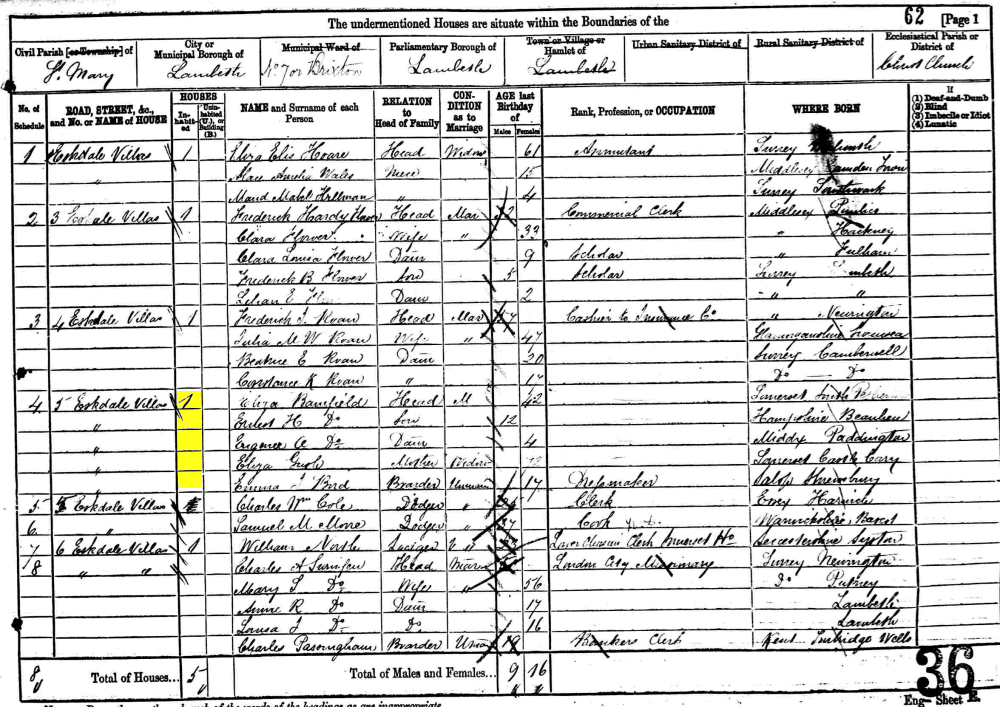 The undermentioned Houses are situate within the Boundaries of the
62 [Page 1
Civil Parish [or Township] of
St. Mary
City or Municipal Borough of
Lambeth
Municipal Ward of
No 7 or Brixton
Parliamentary Borough of
Lambeth
Town or Village or Hamlet of
Lambeth
Urban Sanitary District of
Rural Sanitary District of
Ecclesiastical Parish or District of
Christ Church
No. of Schedule
ROAD, STREET, &c., and No. or NAME of HOUSE
HOUSES
Inhabited
Uninhabited (U.), or Building (B.)
NAME and Surname of each Person
RELATION to Head of Family
CONDITION as to Marriage
AGE last Birthday of
Males
Females
Rank, Profession, or OCCUPATION
WHERE BORN
If
(1) Deaf-and-Dumb
(2) Blind
(3) Imbecile or Idiot
(4) Lunatic
1 Eskdale Villas 1 Eliza Hoare Head Widow 61 Annuitant Surrey
" Amelia Wales Niece 15 Middlesex Camden Town
" Maud Mabel " 4 Surrey Southwark
2 3 Eskdale Villas 1 Frederick Hardy Head Mar Commercial Clerk Middlesex Pimlico
Clara Flower Wife " 33 " Hackney
Clara Louisa Flower Daur 9 Scholar " Fulham
Frederick B Flower Son 5 Scholar Surrey Lambeth
Lilian E Daur 2 " "
3 4 Eskdale Villas 1 Frederick J. Roan Head Mar Cashier to Insurance Co " Newington
Julia M W Roan Wife " 47 Glamorganshire Swansea
Beatrice E Roan Daur 20 Surrey Camberwell
Constance K Roan " 17 Do Do
4 5 Eskdale Villas 1 Eliza Bamfield Head M 42 Somerset
" Ernest H Do Son 12 Hampshire Beaulieu
" Eugenie A Do Daur 4 Middx Paddington
" Eliza Mother Widow Somerset Castle Cary
" Emma J Bird Boarder Unmar 17 Dressmaker Salop Shrewsbury
5 5 Eskdale Villas Charles Wm Cole Lodger " Clerk Essex Harwich
6 " Samuel M. More Lodger " 37 Warwickshire
7 6 Eskdale Villas 1 William North Lodger " Clerk Somerset Ho Leicestershire Syston
8 " " Charles A Head Marr London City Missionary Surrey Newington
Mary S Do Wife " 56 Do Putney
Annie R Do Daur 17 Lambeth
Louisa J Do Do 16 Lambeth
Charles Boarder Unmar 19 Bankers Clerk Kent Tunbridge Wells
8 Total of Houses... 5 Total of Males and Females... 9 16
36
Eng— Sheet E.